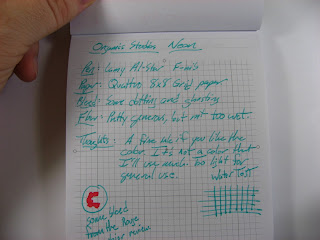 Organic Studio Neon
Pen: Lamy Al-Star F-nib
Paper: Quattro 8x8 Grid paper
Bleed: Some dotting and ghosting
Flow: Pretty generous, but not too wet.
Thoughts: A fine ink if you like the
color. It's not a color that
I'll use much. Too light for
general use.
Water Test
C
some bleed
from the
review